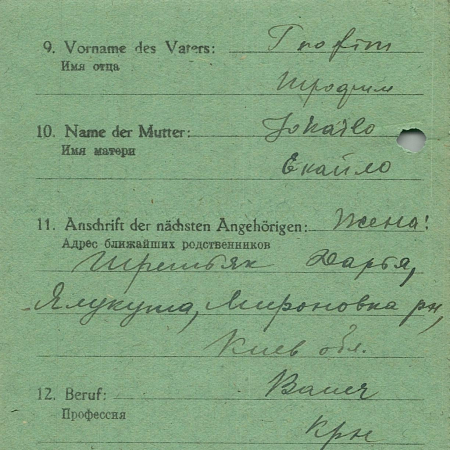 9. Vorname des Vaters: Trofim
Имя отца
Трофим
10. Name der Mutter:
Имя матери
Скайло
11. Anschrift der nächsten Angehörigen: Жена!
Адрес ближайших родственников
Дарья,
Мироновка рн,
Киев обл.
12. Beruf: Bauer
Профессия
крн